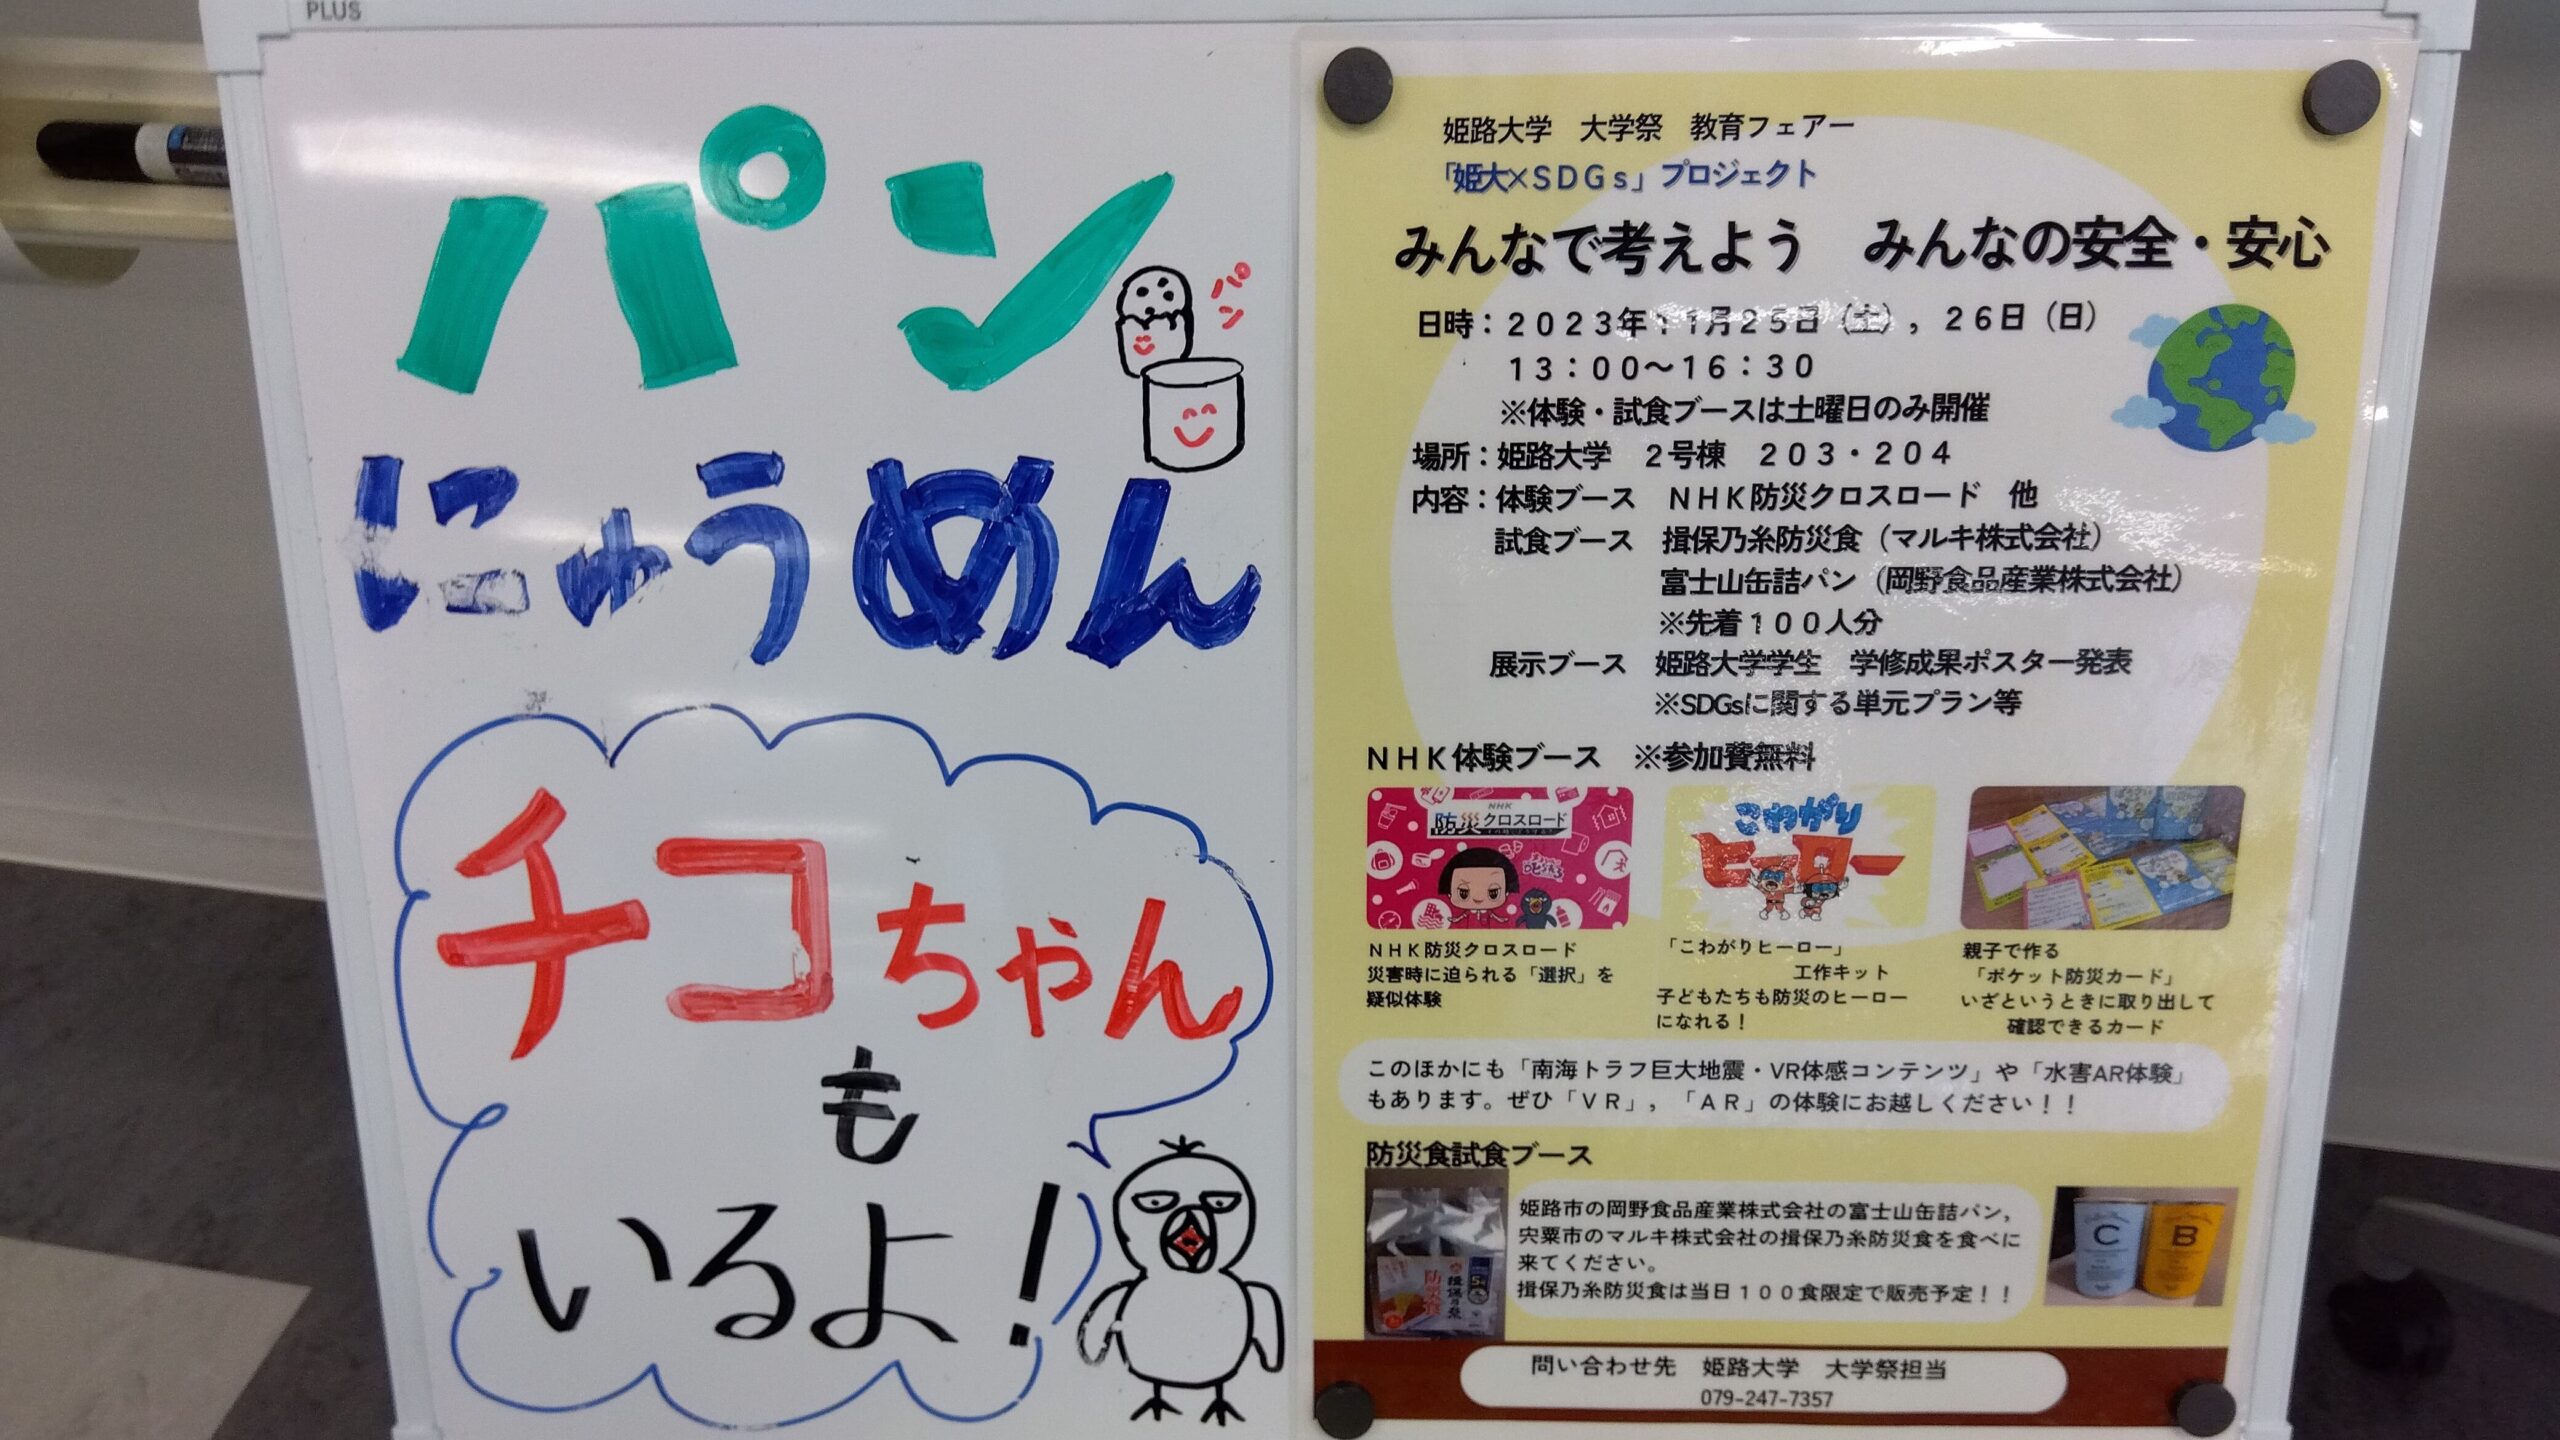 PLUS
パン
パン
にゅうめん
チコちゃん
も
いるよ!
姫路大学　大学祭　教育フェアー
「姫大×SDGs」プロジェクト
みんなで考えよう　みんなの安全・安心
日時：2023年11月25日（土），26日（日）
13：00～16：30
※体験・試食ブースは土曜日のみ開催
場所：姫路大学　2号棟　203・204
内容：体験ブース　NHK防災クロスロード　他
試食ブース　揖保乃糸防災食（マルキ株式会社）
富士山缶詰パン（岡野食品産業株式会社）
※先着100人分
展示ブース　姫路大学学生　学修成果ポスター発表
※SDGsに関する単元プラン等
NHK体験ブース　※参加費無料
NHK
防災クロスロード
こわがり
ヒーロー
NHK防災クロスロード
災害時に迫られる「選択」を
疑似体験
「こわがりヒーロー」
工作キット
子どもたちも防災のヒーロー
になれる！
親子で作る
「ポケット防災カード」
いざというときに取り出して
確認できるカード
このほかにも「南海トラフ巨大地震・VR体感コンテンツ」や「水害AR体験」
もあります。ぜひ「VR」，「AR」の体験にお越しください！！
防災食試食ブース
姫路市の岡野食品産業株式会社の富士山缶詰パン，
宍粟市のマルキ株式会社の揖保乃糸防災食を食べに
来てください。
揖保乃糸防災食は当日100食限定で販売予定！！
揖保乃糸
防災食
C
B
問い合わせ先　姫路大学　大学祭担当
079-247-7357